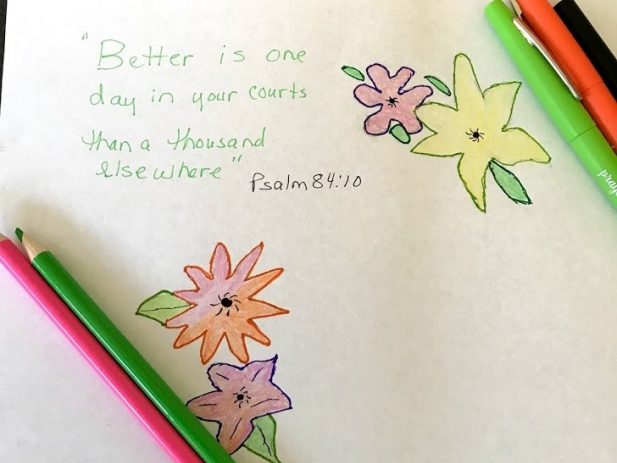 "Better is one
day in your courts
than a thousand
elsewhere"
Psalm 84:10